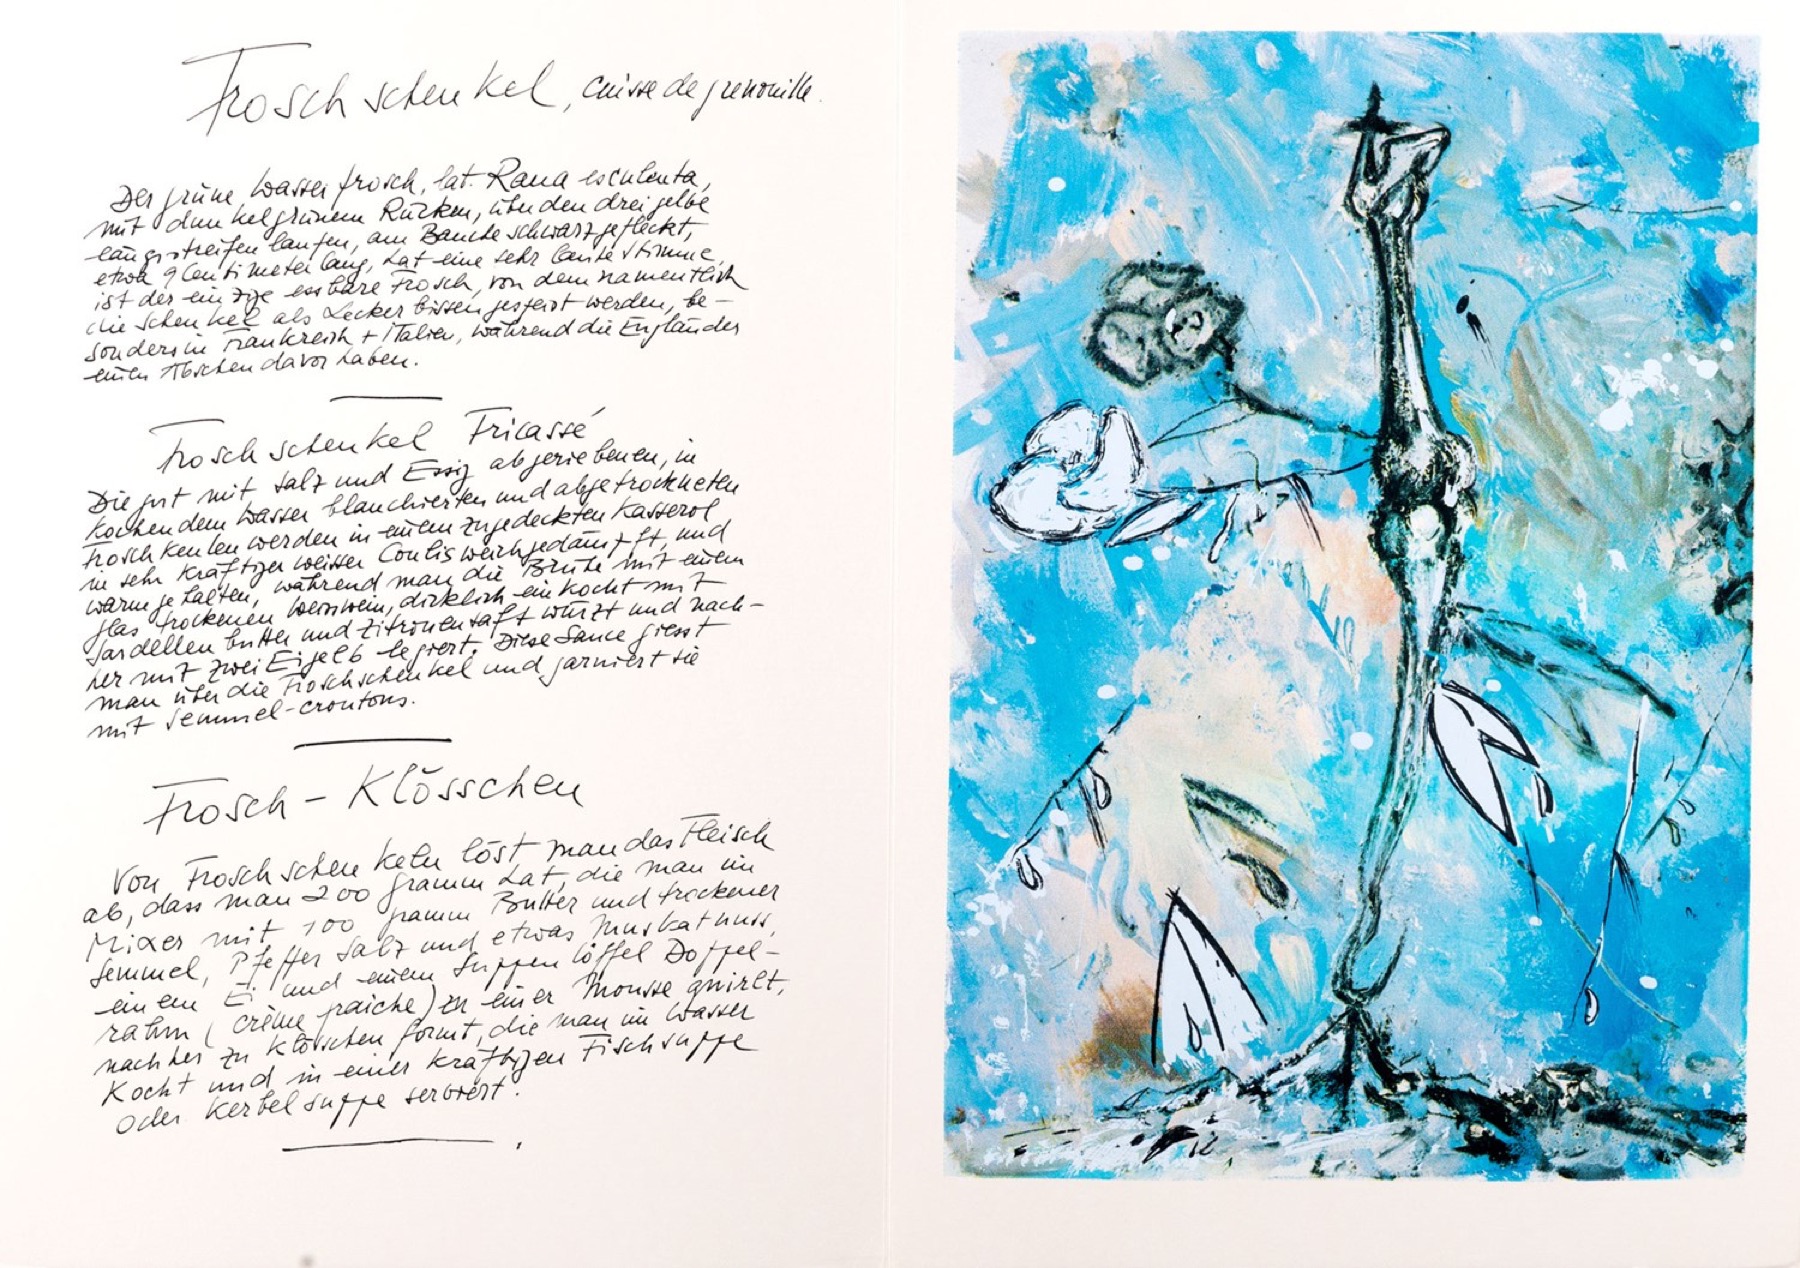 Froschschenkel, cuisse de grenouille.
Der grüne Wasserfrosch, lat. Rana esculenta,
mit dunkelgrünem Rücken, über den drei gelbe
längsstreifen laufen, am Bauche schwarz gefleckt,
etwa 9 Centimeter lang, hat eine sehr laute Stimme,
ist der einzige essbare Frosch, von dem namentlich
die Schenkel als Leckerbissen gespeist werden, be-
sonders in Frankreich + Italien, während die Engländer
einen Abscheu davor haben.
Froschschenkel Fricassé
Die gut mit Salz und Essig abgeriebenen, in
kochendem Wasser blanchierten und abgetrockneten
Froschkeulen werden in einem zugedeckten Kasserol
in sehr kräftiger weisser Coulis weichgedämpft, und
warm gehalten, während man die Brühe mit einem
glas trockenen Weisswein, dicklich einkocht mit
Sardellenbutter und Zitronensaft würzt und nach-
her mit zwei Eigelb legiert. Diese Sauce giesst
man über die Froschschenkel und garniert sie
mit Semmel-croutons.
Frosch - Klösschen
Von Froschschenkeln löst man das Fleisch
ab, dass man 200 gramm hat, die man im
Mixer mit 100 gramm Butter und trockener
Semmel, Pfeffer Salz und etwas Muskatnuss,
einem Ei und einem Suppenlöffel Doppel-
rahm (crème fraiche) zu einer Mousse quirlt,
nachher zu Klösschen formt, die man im Wasser
kocht und in einer kräftigen Fischsuppe
oder Kerbelsuppe serviert.